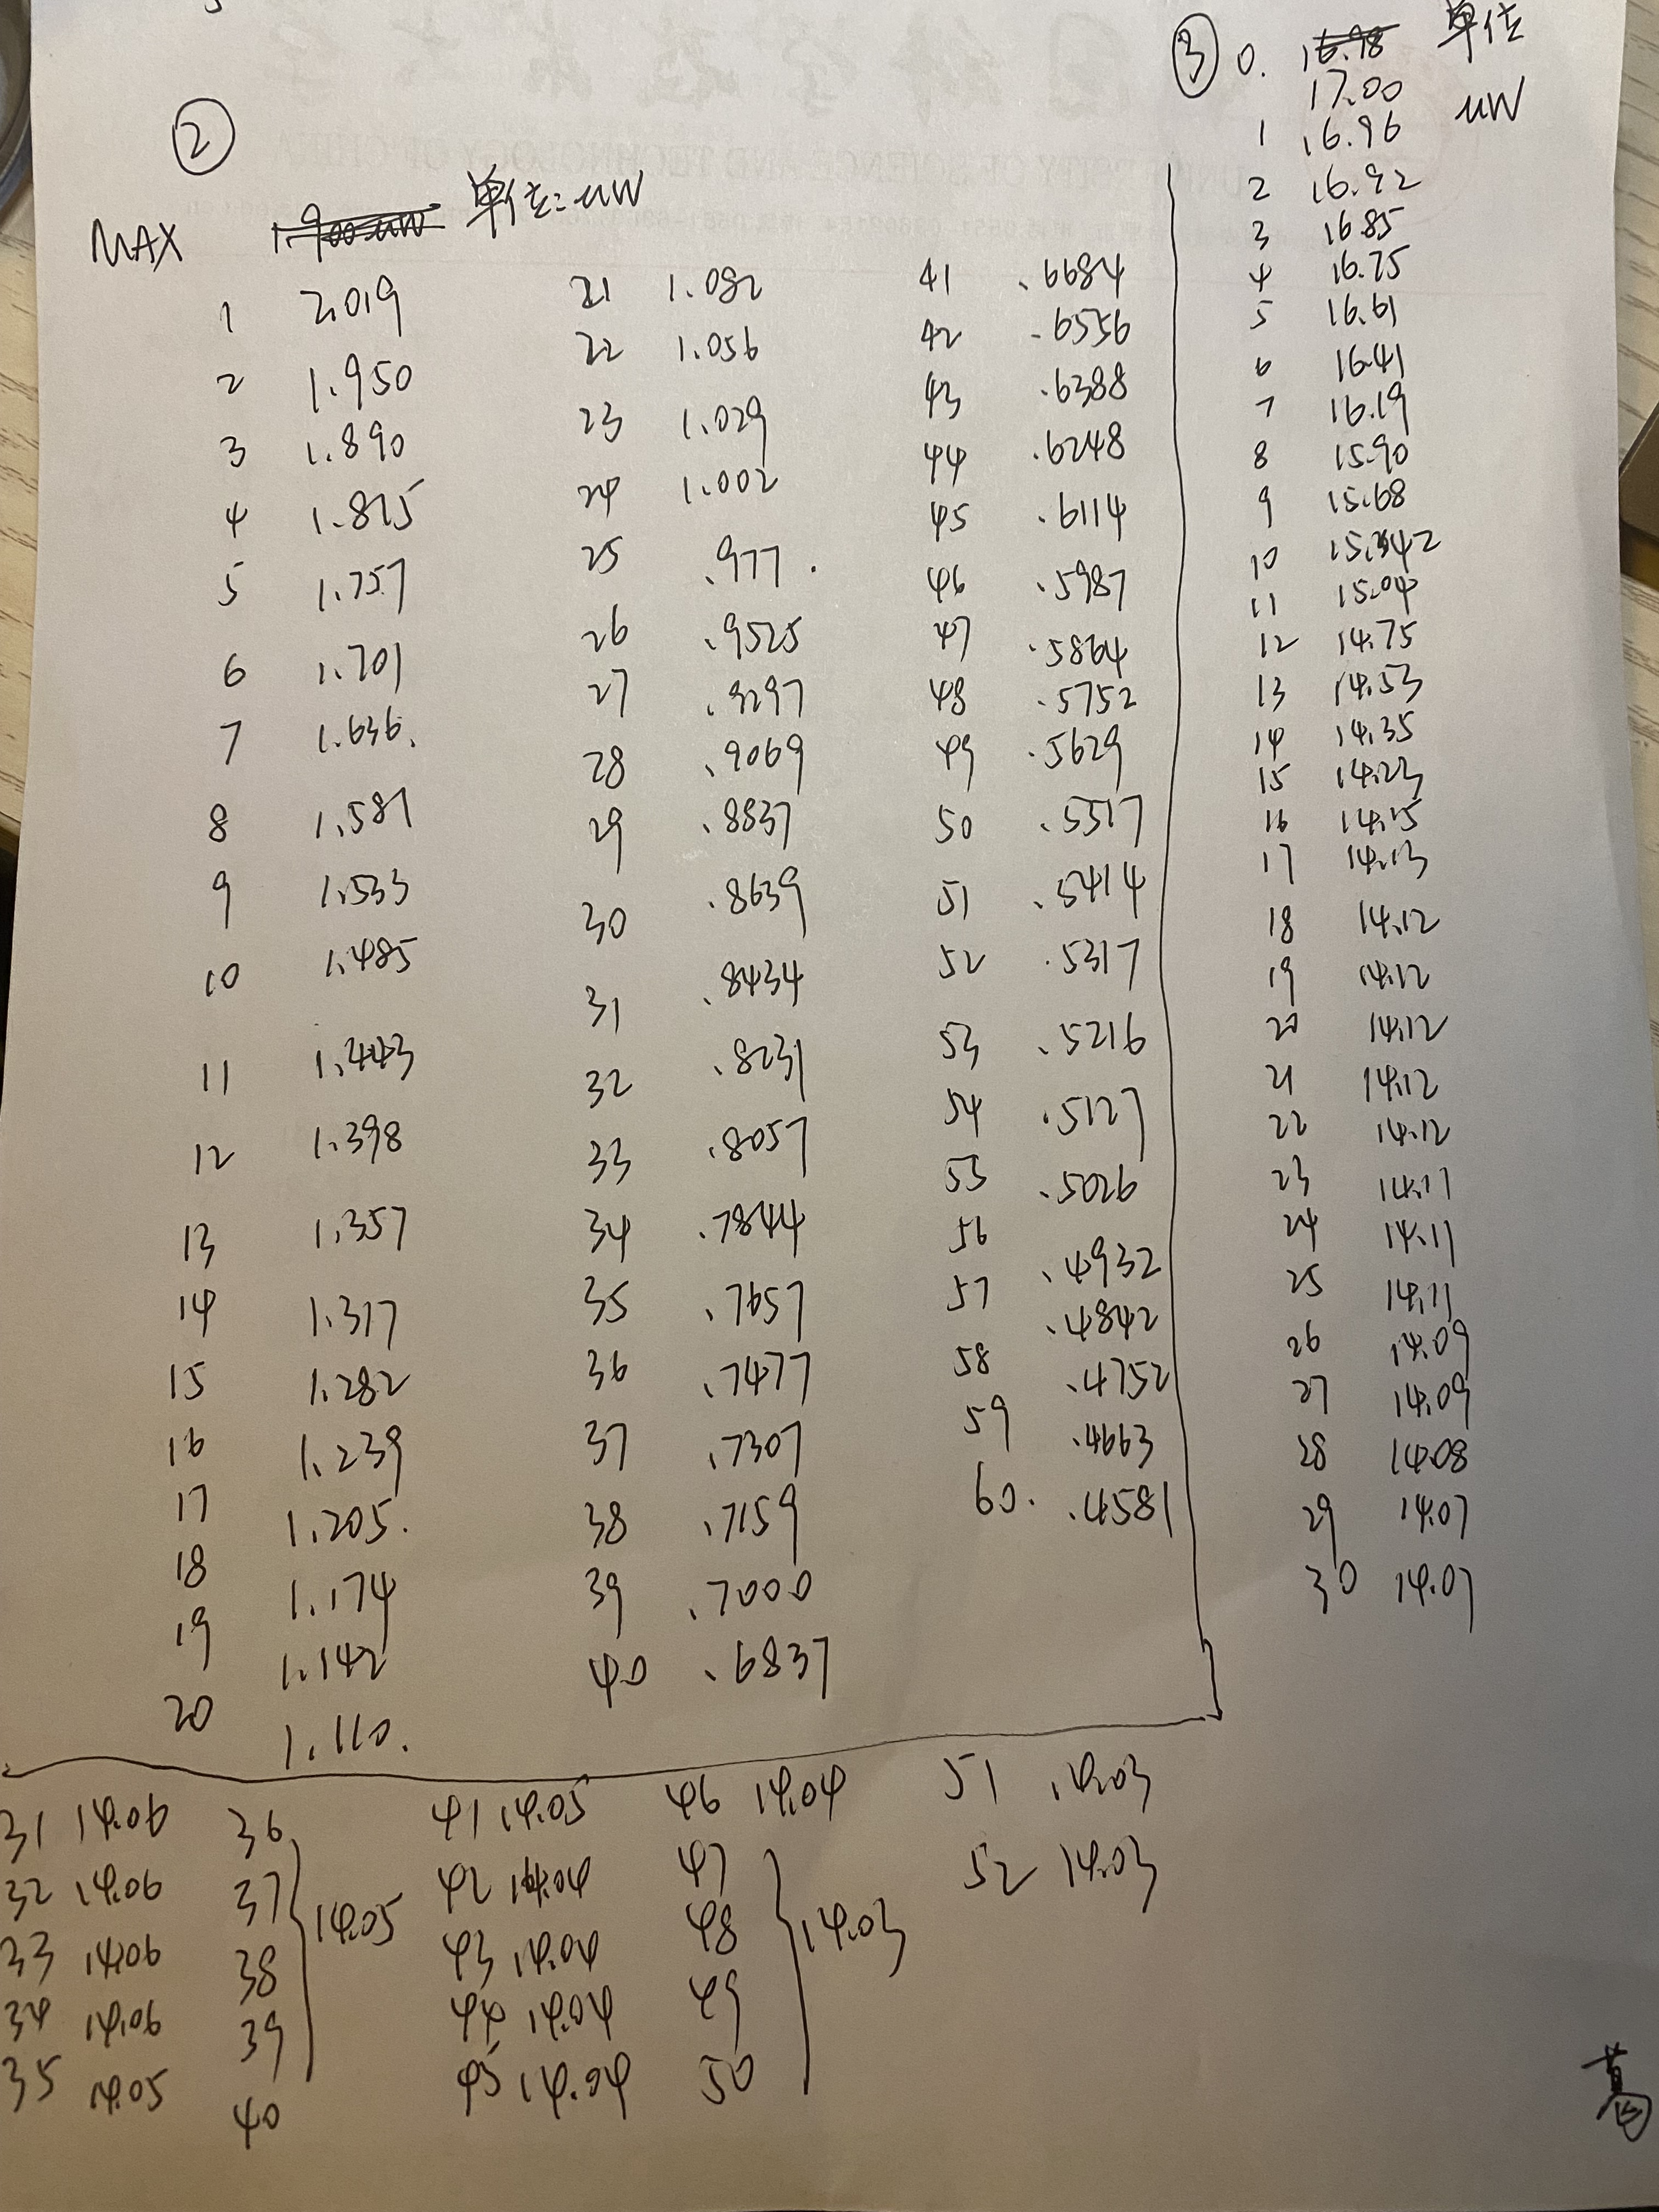 ②
MAX 单位: uW
1 2.019
2 1.950
3 1.890
4 1.825
5 1.757
6 1.701
7 1.636.
8 1.581
9 1.533
10 1.485
11 1.443
12 1.398
13 1.357
14 1.317
15 1.282
16 1.239
17 1.205.
18 1.174
19 1.142
20 1.110.
21 1.082
22 1.056
23 1.029
24 1.002
25 .977.
26 .9525
27 .9297
28 .9069
29 .8837
30 .8639
31 .8434
32 .8231
33 .8057
34 .7844
35 .7657
36 .7477
37 .7307
38 .7159
39 .7000
40 .6837
41 .6684
42 .6556
43 .6388
44 .6248
45 .6114
46 .5987
47 .5864
48 .5752
49 .5629
50 .5517
51 .5414
52 .5317
53 .5216
54 .5127
55 .5026
56 .4932
57 .4842
58 .4752
59 .4663
60. .4581
③ 0. 16.98 单位
17.00 uW
1 16.96
2 16.92
3 16.85
4 16.75
5 16.61
6 16.41
7 16.19
8 15.90
9 15.68
10
11 15.04
12 14.75
13 14.53
14 14.35
15 14.23
16 14.15
17 14.13
18 14.12
19 14.12
20 14.12
21 14.12
22 14.12
23 14.11
24 14.11
25 14.11
26 14.09
27 14.09
28 14.08
29 14.07
30 14.07
31 14.06
32 14.06
33 14.06
34 14.06
35 14.05
36
37
38
39
40
14.05
41 14.05
42 14.04
43 14.04
44 14.04
45 14.04
46 14.04
47
48
49
50
14.03
51 14.03
52 14.03
葛